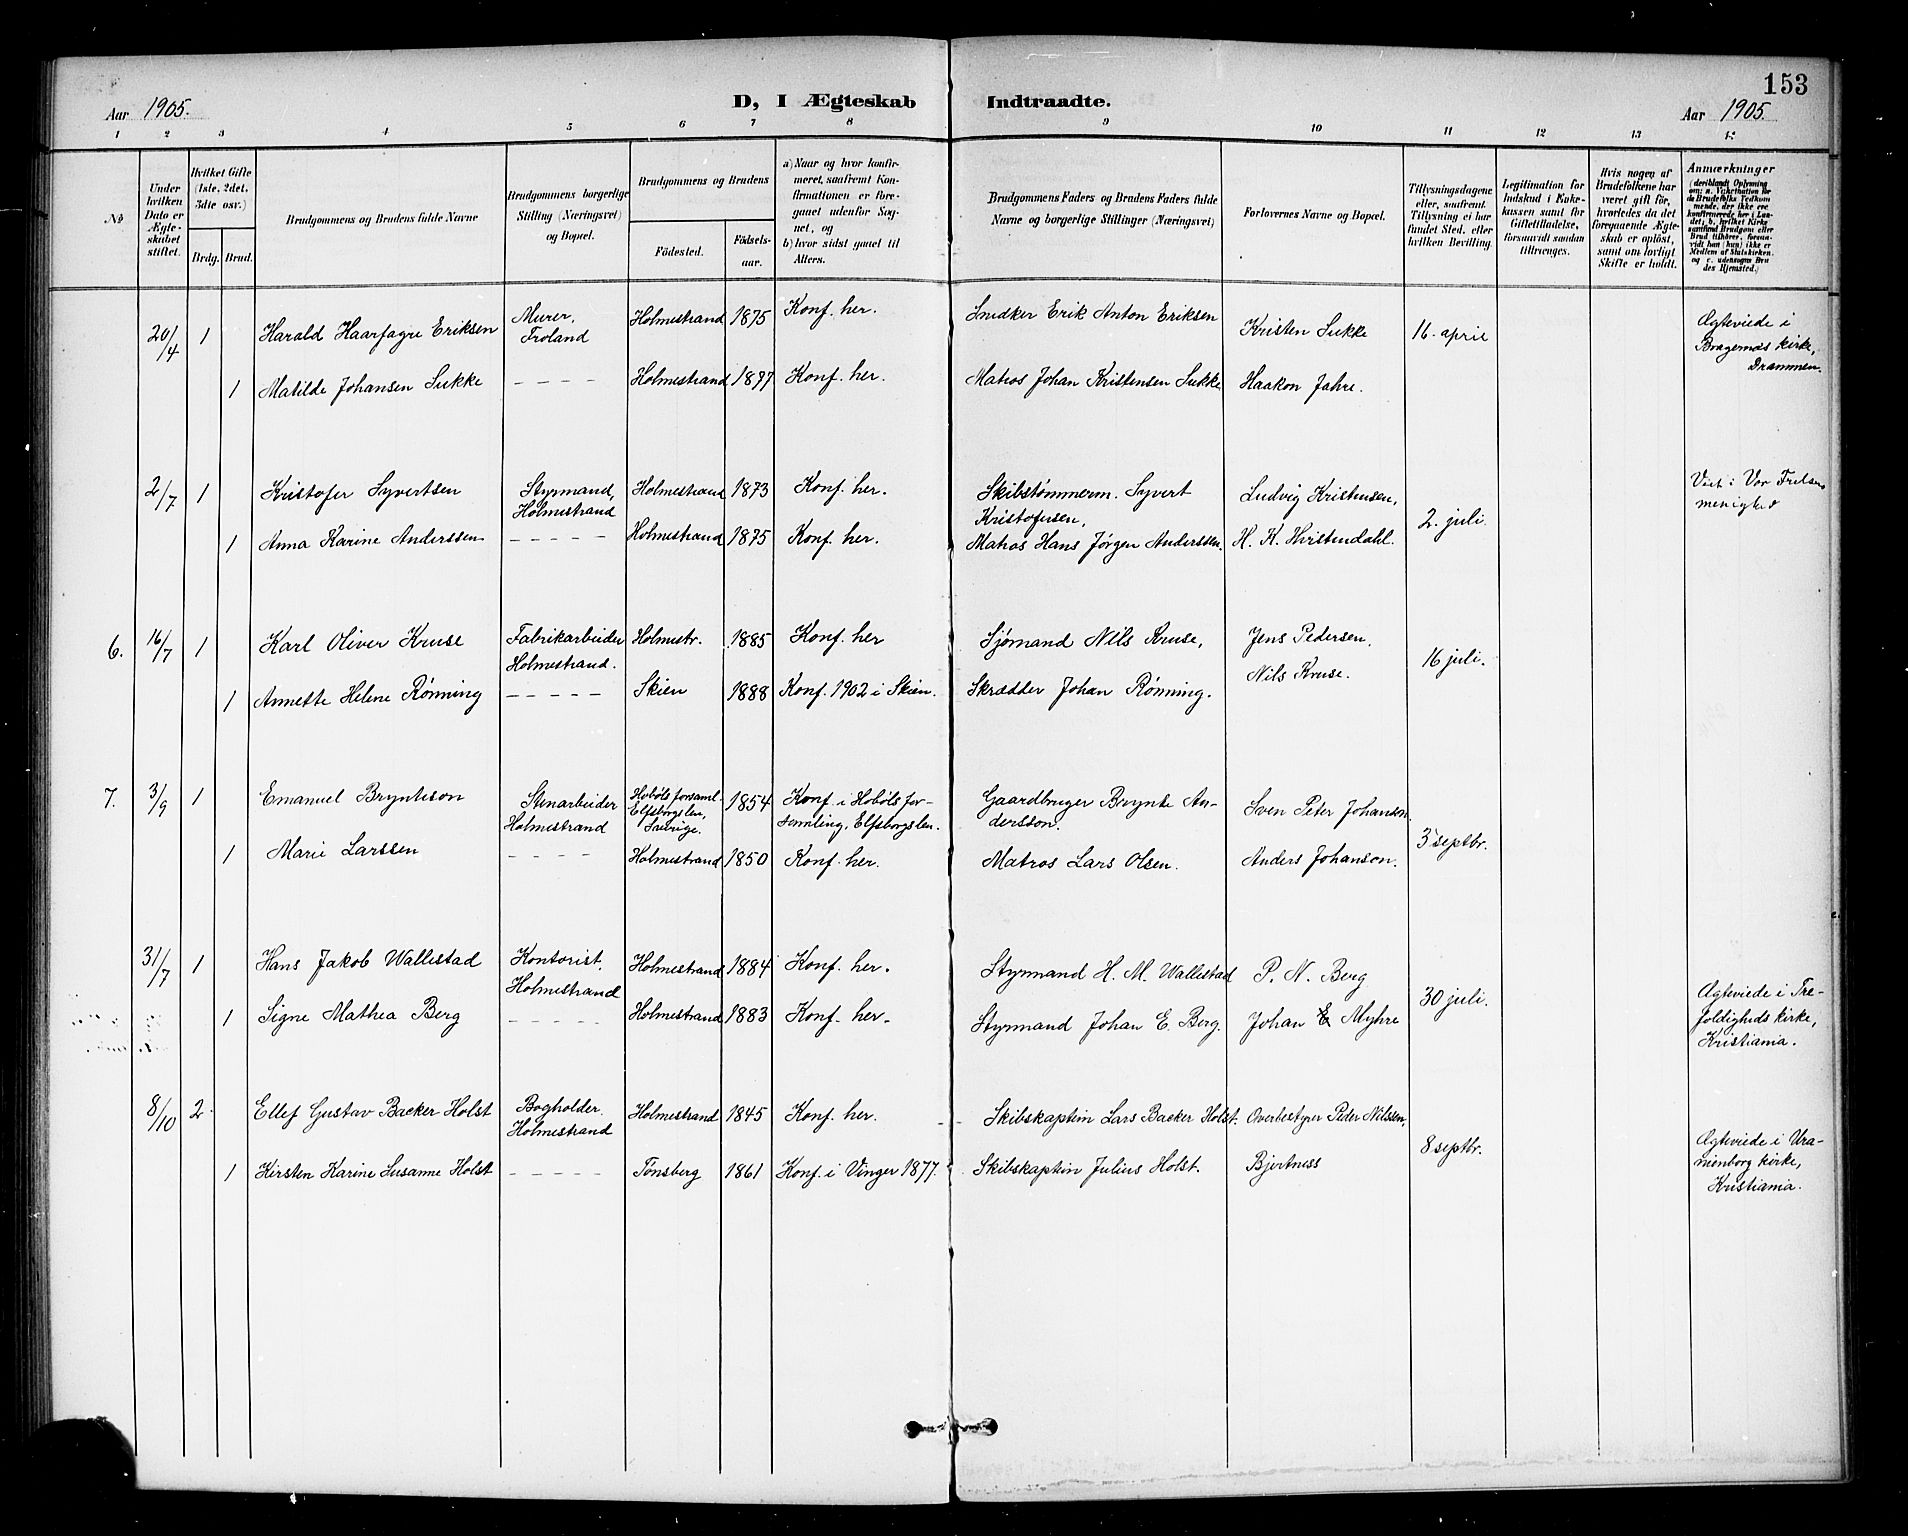 153
Aar 1905. D, I Ægteskab Indtraadte. Aar 1905.
1 2 3 4 5 6 7 8 9 10 11 12 13 14
No
Under hvilken Dato er Ægteskabet stiftet.
Hvilket Gifte (1ste, 2det, 3die osv.)
Brdg. Brud.
Brudgommens og Brudens fulde Navne
Brudgommens borgerlige Stilling (Næringsvei) og Bopæl.
Brudgommens og Brudens
Födested. Födsels-aar.
a) Naar og hvor konfirmeret, saafremt Konfirmationen er foregaaet udenfor Sognet, og
b) hvor sidst gaaet til Alters.
Brudgommens Faders og Brudens Faders fulde Navne og borgerlige Stillinger (Næringsvei)
Forlovernes Navne og Bopæl.
Tillysningsdagene eller, saafremt Tillysning ei har fundet Sted, efter hvilken Bevilling.
Legitimation for Indskud i Enkekassen samt for Giftetilladelse, forsaavidt saadan tiltrænges.
Hvis nogen af Brudefolkene har været gift før, hvorledes da det foregaaende Ægteskab er oplöst, samt om lovligt Skifte er holdt.
Anmærkninger
20/4 1 Harald Haarfagre Eriksen Murer, Froland Holmestrand 1875 Konf. her. Snedker Erik Anton Eriksen Kristen Sukke 16. april Ægteviede i Bragernæs kirke, Drammen.
1 Matilde Johansen Sukke - - - - Holmestrand 1877 Konf. her. Matros Johan Kristensen Sukke Haakon Jahre.
2/7 1 Kristofer Syvertsen Styrmand, Holmestrand Holmestrand 1873 Konf. her. Skibstømmerm. Syvert Kristofersen, Ludvig Kristensen, 2. juli. Viet i Vor Frelsers menighed
1 Anna Karine Anderssen - - - - - Holmestrand 1875 Konf. her. Matros Hans Jørgen Anderssen. H. K. Hvistendahl.
6. 16/7 1 Karl Oliver Kruse Fabrikarbeider Holmestrand. Holmestr. 1885 Konf. her Sjømand Nils Kruse, Jens Pedersen. 16 juli.
1 Annette Helene Rønning - - - - - Skien 1888 Konf. 1902 i Skien. Skrædder Johan Rønning. Nils Kruse.
7. 3/9 1 Emanuel Brynteson Stenarbeider Holmestrand Hobøls forsaml. Elfsborgslen, Sverige. 1854 Konf. i Hobøls forsamling, Elfsborgslen. Gaardbruger Brynte Andersson. Sven Peter Johanson. 3 septbr.
1 Marie Larssen - - - - Holmestrand 1850 Konf. her. Matros Lars Olsen. Anders Johanson.
31/7 1 Hans Jakob Wallestad Kontorist, Holmestrand Holmestrand 1884 Konf. her. Styrmand H. M. Wallestad P. N. Berg 30 juli. Ægteviede i Trefoldigheds kirke, Kristiania.
1 Signe Mathea Berg - - - - - Holmestrand 1883 Konf. her. Styrmand Johan E. Berg. Johan E Myhre
8/10 2 Ellef Gustav Backer Holst Bogholder. Holmestrand Holmestrand 1845 Konf. her. Skibskaptein Lars Backer Holst. Overbestyrer Peder Nilssen, 8 septbr. Ægteviede i Uranienborg kirke, Kristiania.
1 Kirsten Karine Susanne Holst - - - - - Tønsberg 1861 Konf. i Vinger 1877. Skibskaptein Julius Holst. Bjertness